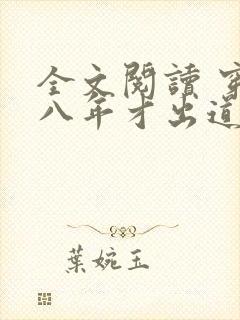 全文閱讀 穿
八年才出道
葉婉玉